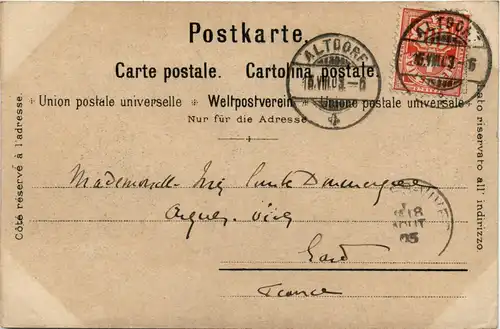 Postkarte.
Carte postale. Cartolina postale.
Union postale universelle * Weltpostverein * Unione postale universale
Nur für die Adresse.
Côté réservé à l'adresse.
Lato riservato all' indirizzo.
ALTDORF
16.VIII.03-6
ALTDORF
16.VIII.03-6
Mademoiselle
Aigues-Vives
Gard
France
18
AOUT